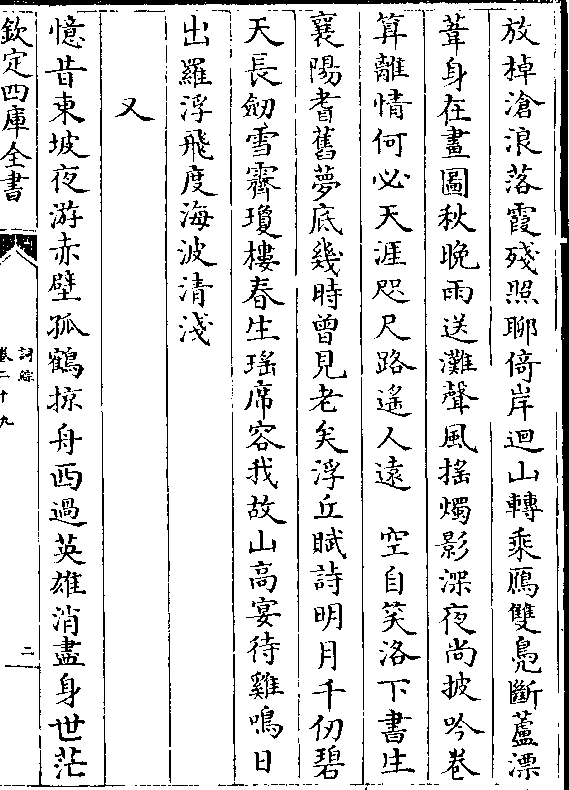 放棹滄浪落霞殘照聊倚岸迴山轉乘鴈雙鳬斷蘆漂
葦身在畫圖秋晚雨送灘聲風搖燭影深夜尚披吟卷
算離情何必天涯咫尺路遙人遠　空自笑洛下書生
襄陽耆舊夢底幾時曾見老矣浮丘賦詩明月千仞碧
天長劒雪霽瓊樓春生瑤席容我故山高宴待雞鳴日
出羅浮飛度海波清淺
又
憶昔東坡夜游赤壁孤鶴掠舟西過英雄消盡身世茫
欽定四庫全書
詞綜
卷二十九
二